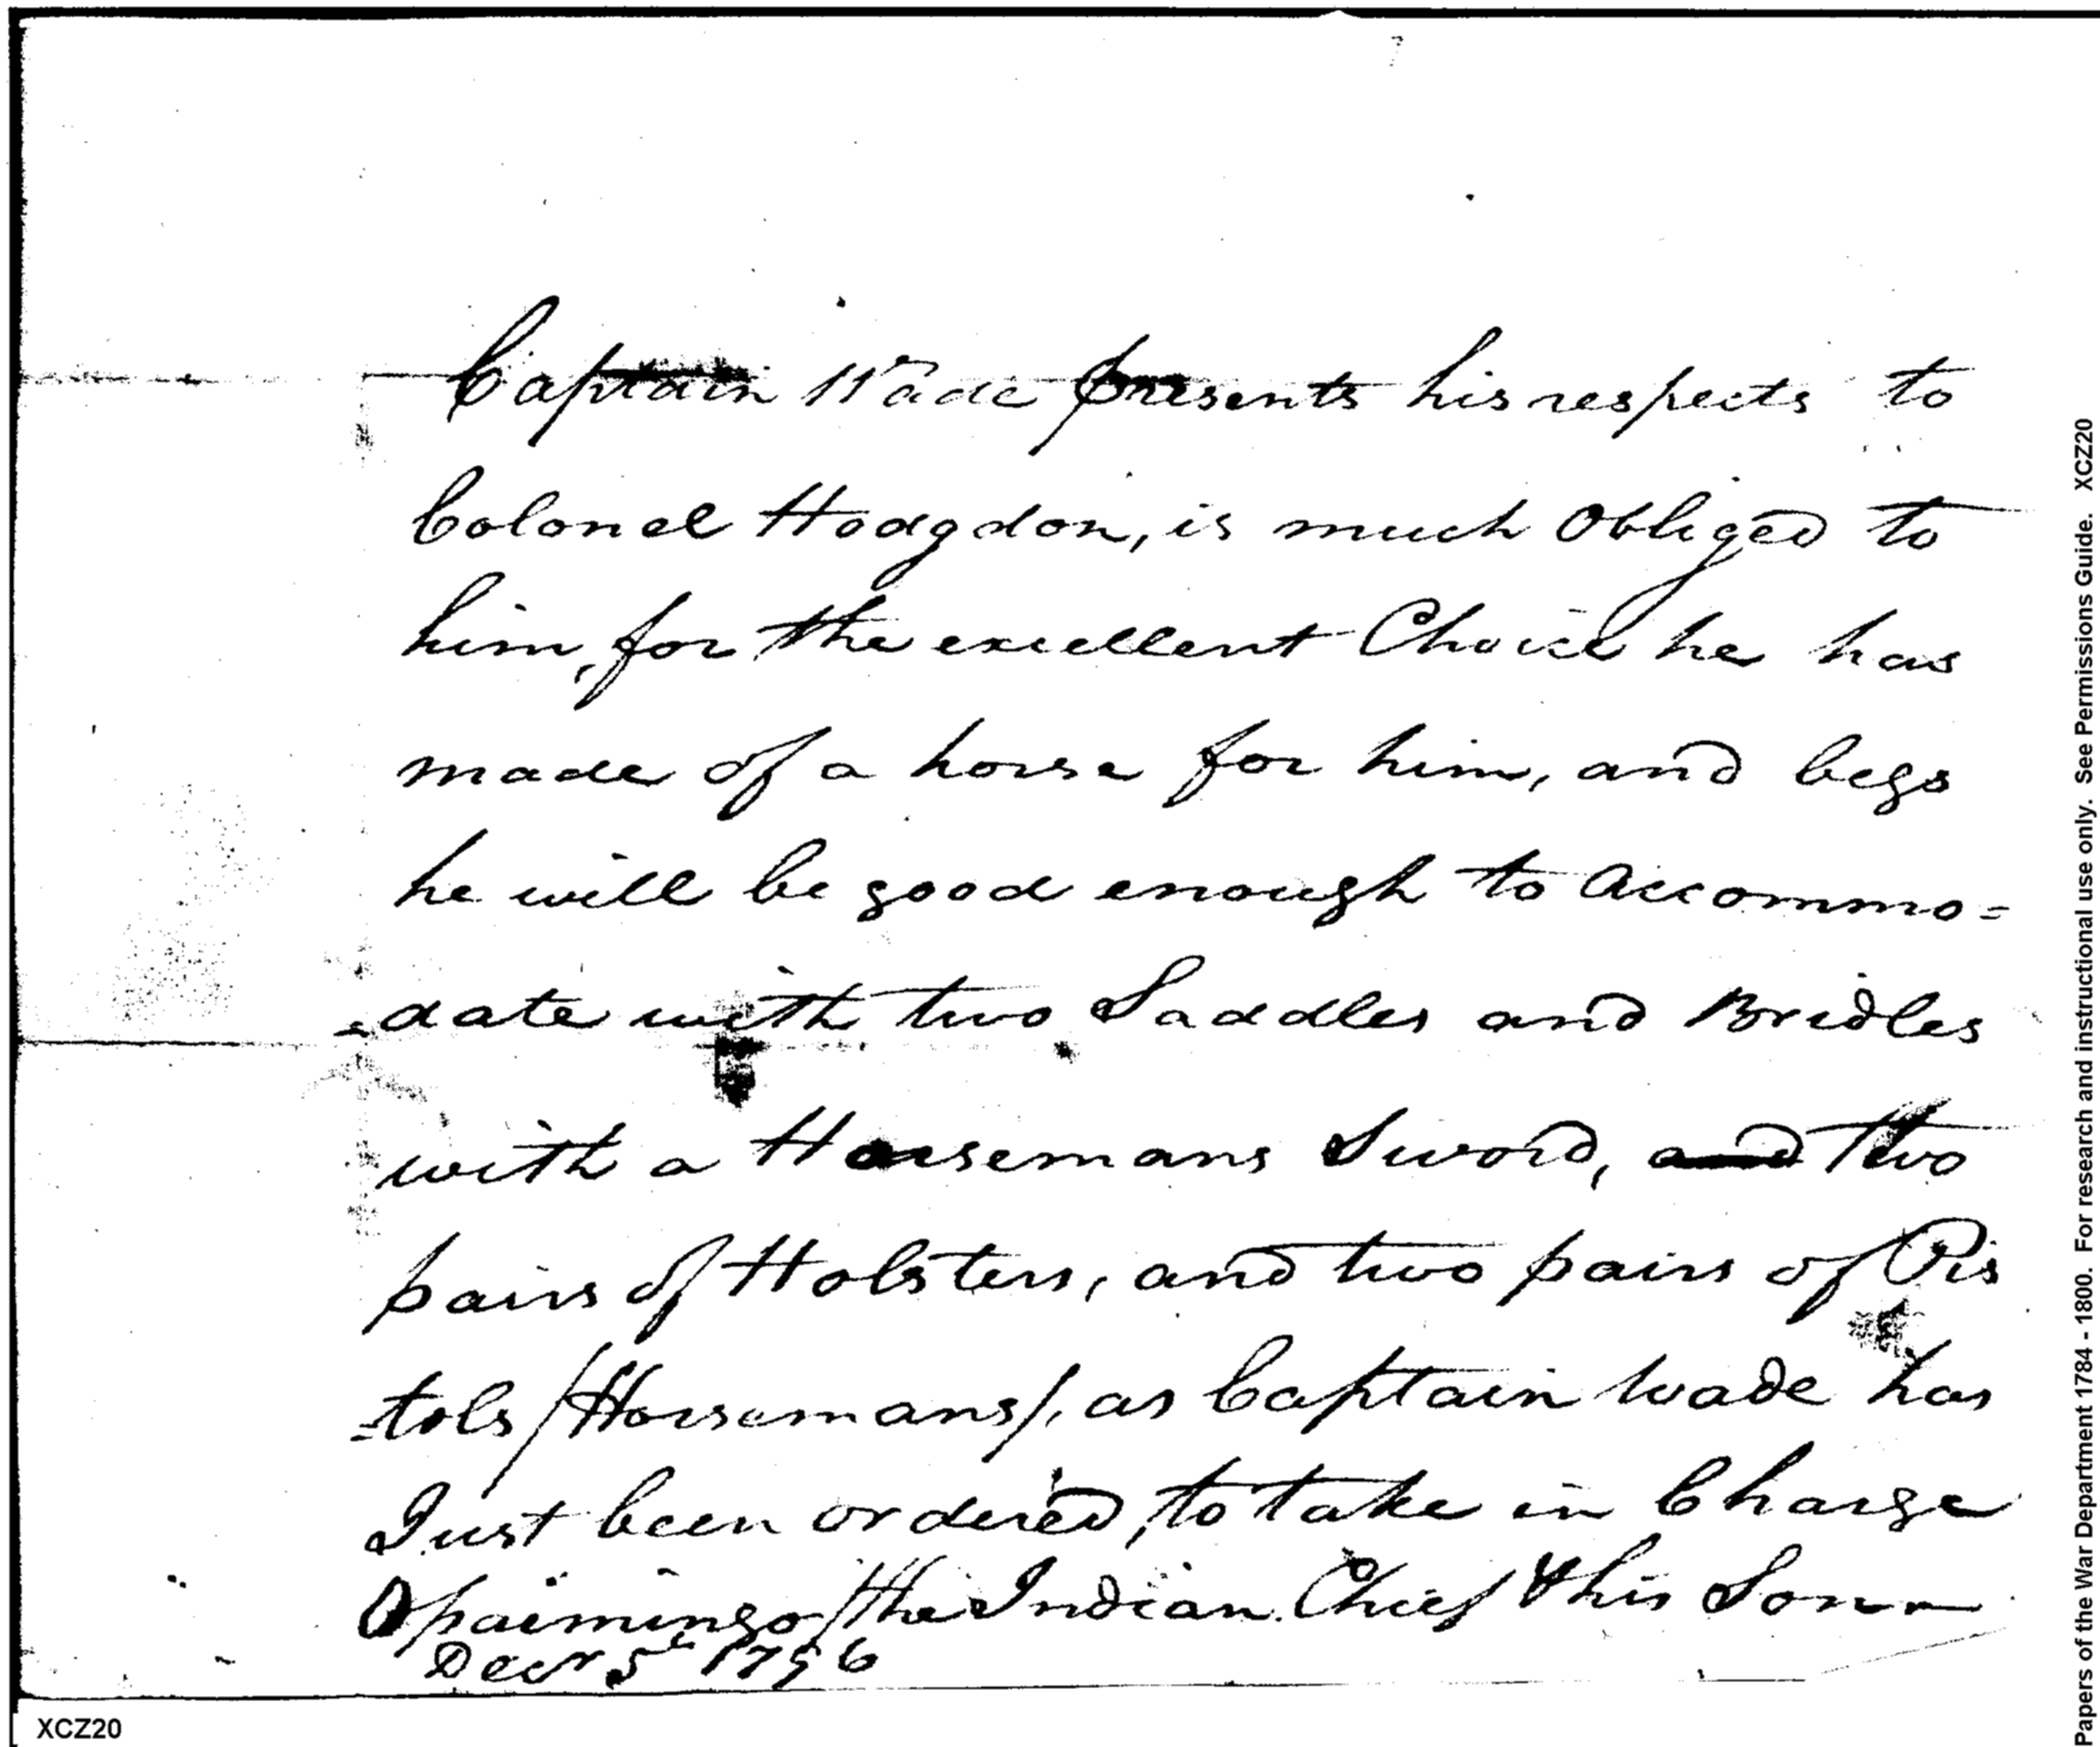 Captain Wade presents his respects to
Colonel Hodgdon, is much Obliged to
him, for the excellent Choice he has
made of a horse for him, and begs
he will be good enough to accommo=
=date with two Saddles and Bridles
with a Horsemans Sword, and two
pairs of Holsters, and two pairs of Pis
=tols /Horsemans/, as Captain Wade has
Just been ordered, to take in Charge
Opaimingo / the Indian Chief & his Son
Decr 5th 1796
XCZ20
Papers of the War Department 1784 - 1800. For research and instructional use only. See Permissions Guide. XCZ20